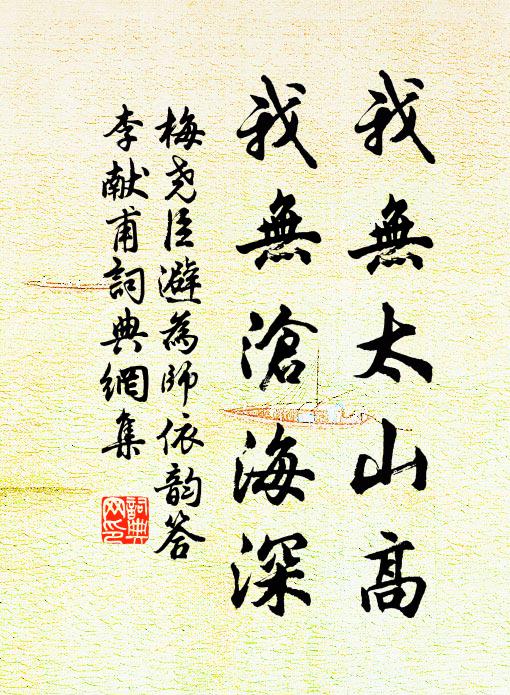 我無太山高
我無滄海深
梅堯臣避為師依韵答
李献甫詞典網集
詞典网印